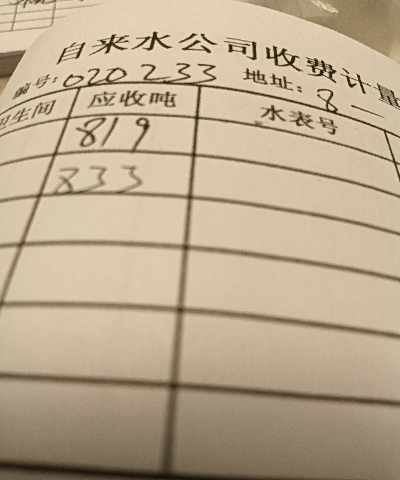 自来水公司收费计量
编号:020233 地址:8一
卫生间 应收吨 水表号
819
833